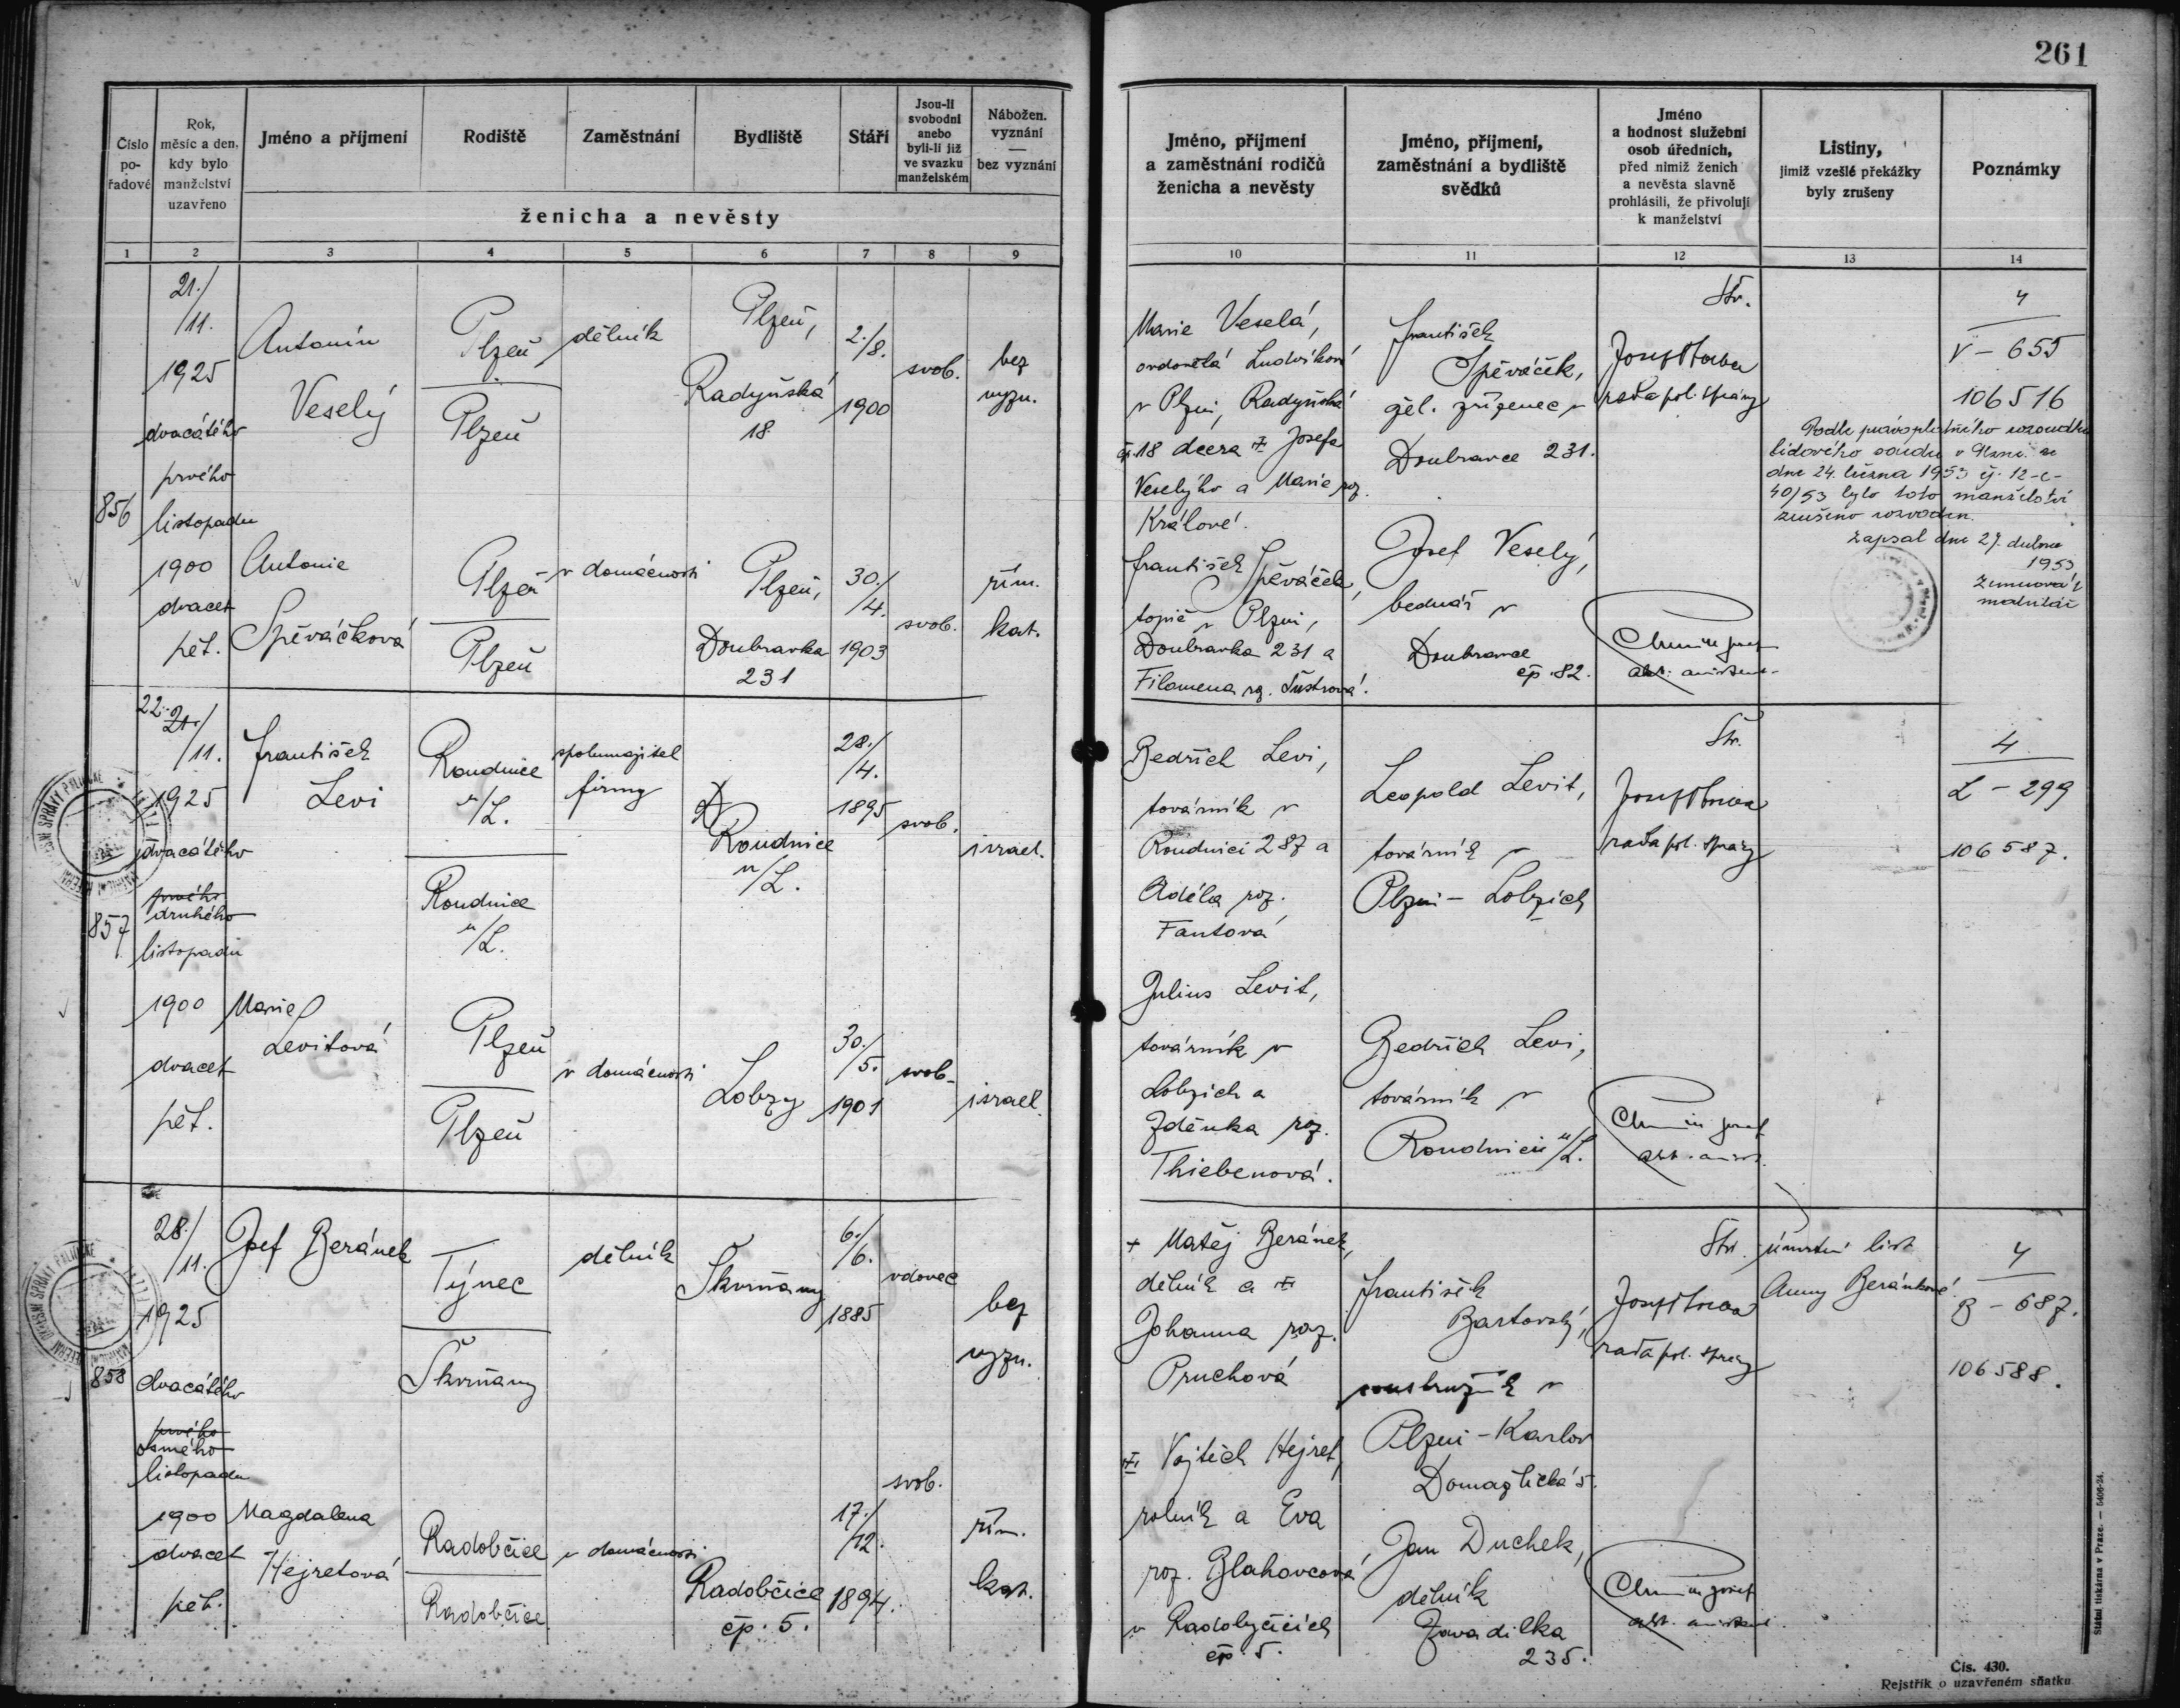 261
Číslo pořadové
Rok, měsíc a den, kdy bylo manželství uzavřeno
Jméno a příjmení
Rodiště
Zaměstnání
Bydliště
Stáří
Jsou-li svobodni anebo byli-li již ve svazku manželském
Nábožen. vyznání — bez vyznání
ženicha a nevěsty
Jméno, příjmení a zaměstnání rodičů ženicha a nevěsty
Jméno, příjmení, zaměstnání a bydliště svědků
Jméno a hodnost služební osob úředních, před nimiž ženich a nevěsta slavně prohlásili, že přivolují k manželství
Listiny, jimiž vzešlé překážky byly zrušeny
Poznámky
1 2 3 4 5 6 7 8 9 10 11 12 13 14
856
21./
/11.
1925
dvacátého
prvého
listopadu
1900
dvacet
pět.
Antonín
Veselý
Plzeň
Plzeň
dělník
Plzeň,
Radyňská
18
2./
/8.
1900
svob.
bez
vyzn.
Antonie
Spěváčková
Plzeň
Plzeň
v domácnosti
Plzeň,
Doubravka
231
30./
/4.
1903
svob.
řím.
kat.
Marie Veselá,
ovdovělá Ludvíková
v Plzni, Radyňská
čp. 18 dcera Josefa
Veselýho a Marie roz.
Králové.
František Spěváček,
topič v Plzni,
Doubravka 231 a
Filomena roz. Šustrová.
František
Spěváček,
žel. zřízenec v
Doubravce 231.
Josef Veselý,
bednář v
Doubravce
čp. 82.
Str.
rada pol. správy
4
V - 655
106516
Podle právoplatného rozsudku
lidového soudu v Plzni ze
dne 24. března 1953 čj. 12-c-
40/53 bylo toto manželství
zrušeno rozvodem.
Zapsal dne 27. dubna
1953
matrikář
857
22.
21./
/11.
1925
dvacátého
prvého
druhého
listopadu
1900
dvacet
pět.
František
Levi
Roudnice
n/L.
Roudnice
n/L.
spolumajitel
firmy
Roudnice
n/L.
28./
/4.
1895
svob.
israel.
Marie
Levitová
Plzeň
Plzeň
v domácnosti
Lobzy
30./
/5.
1901
svob.
israel.
Bedřich Levi,
továrník v
Roudnici 287 a
Adéla roz.
Fantová
Julius Levit,
továrník v
Lobzích a
Zdeňka roz.
Thiebenová.
Leopold Levit,
továrník v
Plzni - Lobzích
Bedřich Levi,
továrník v
Roudnici n/L.
Str.
rada pol. správy
4
L - 299
106587.
858
28./
/11.
1925
dvacátého
prvého
osmého
listopadu
1900
dvacet
pět.
Josef Beránek
Týnec
Škvrňany
dělník
Škvrňany
6./
/6.
1885
vdovec
bez
vyzn.
Magdalena
Hejretová
Radobčice
Radobčice
v domácnosti
Radobčice
čp. 5.
17./
/12.
1894.
svob.
řím.
kat.
+ Matěj Beránek,
dělník a +
Johanna roz.
Pruchová
Vojtěch Hejret,
rolník a Eva
roz. Blahovcová
v Radobyčicích
čp. 5.
František
Bartovský,
soustružník v
Plzni - Karlov
Domažlická 5.
Jan Duchek,
dělník
Zavadilka
235.
Str.
rada pol. správy
úmrtní list
Anny Beránkové.
4
B - 687.
106588.
Státní tiskárna v Praze. — 5406-24.
Čís. 430.
Rejstřík o uzavřeném sňatku